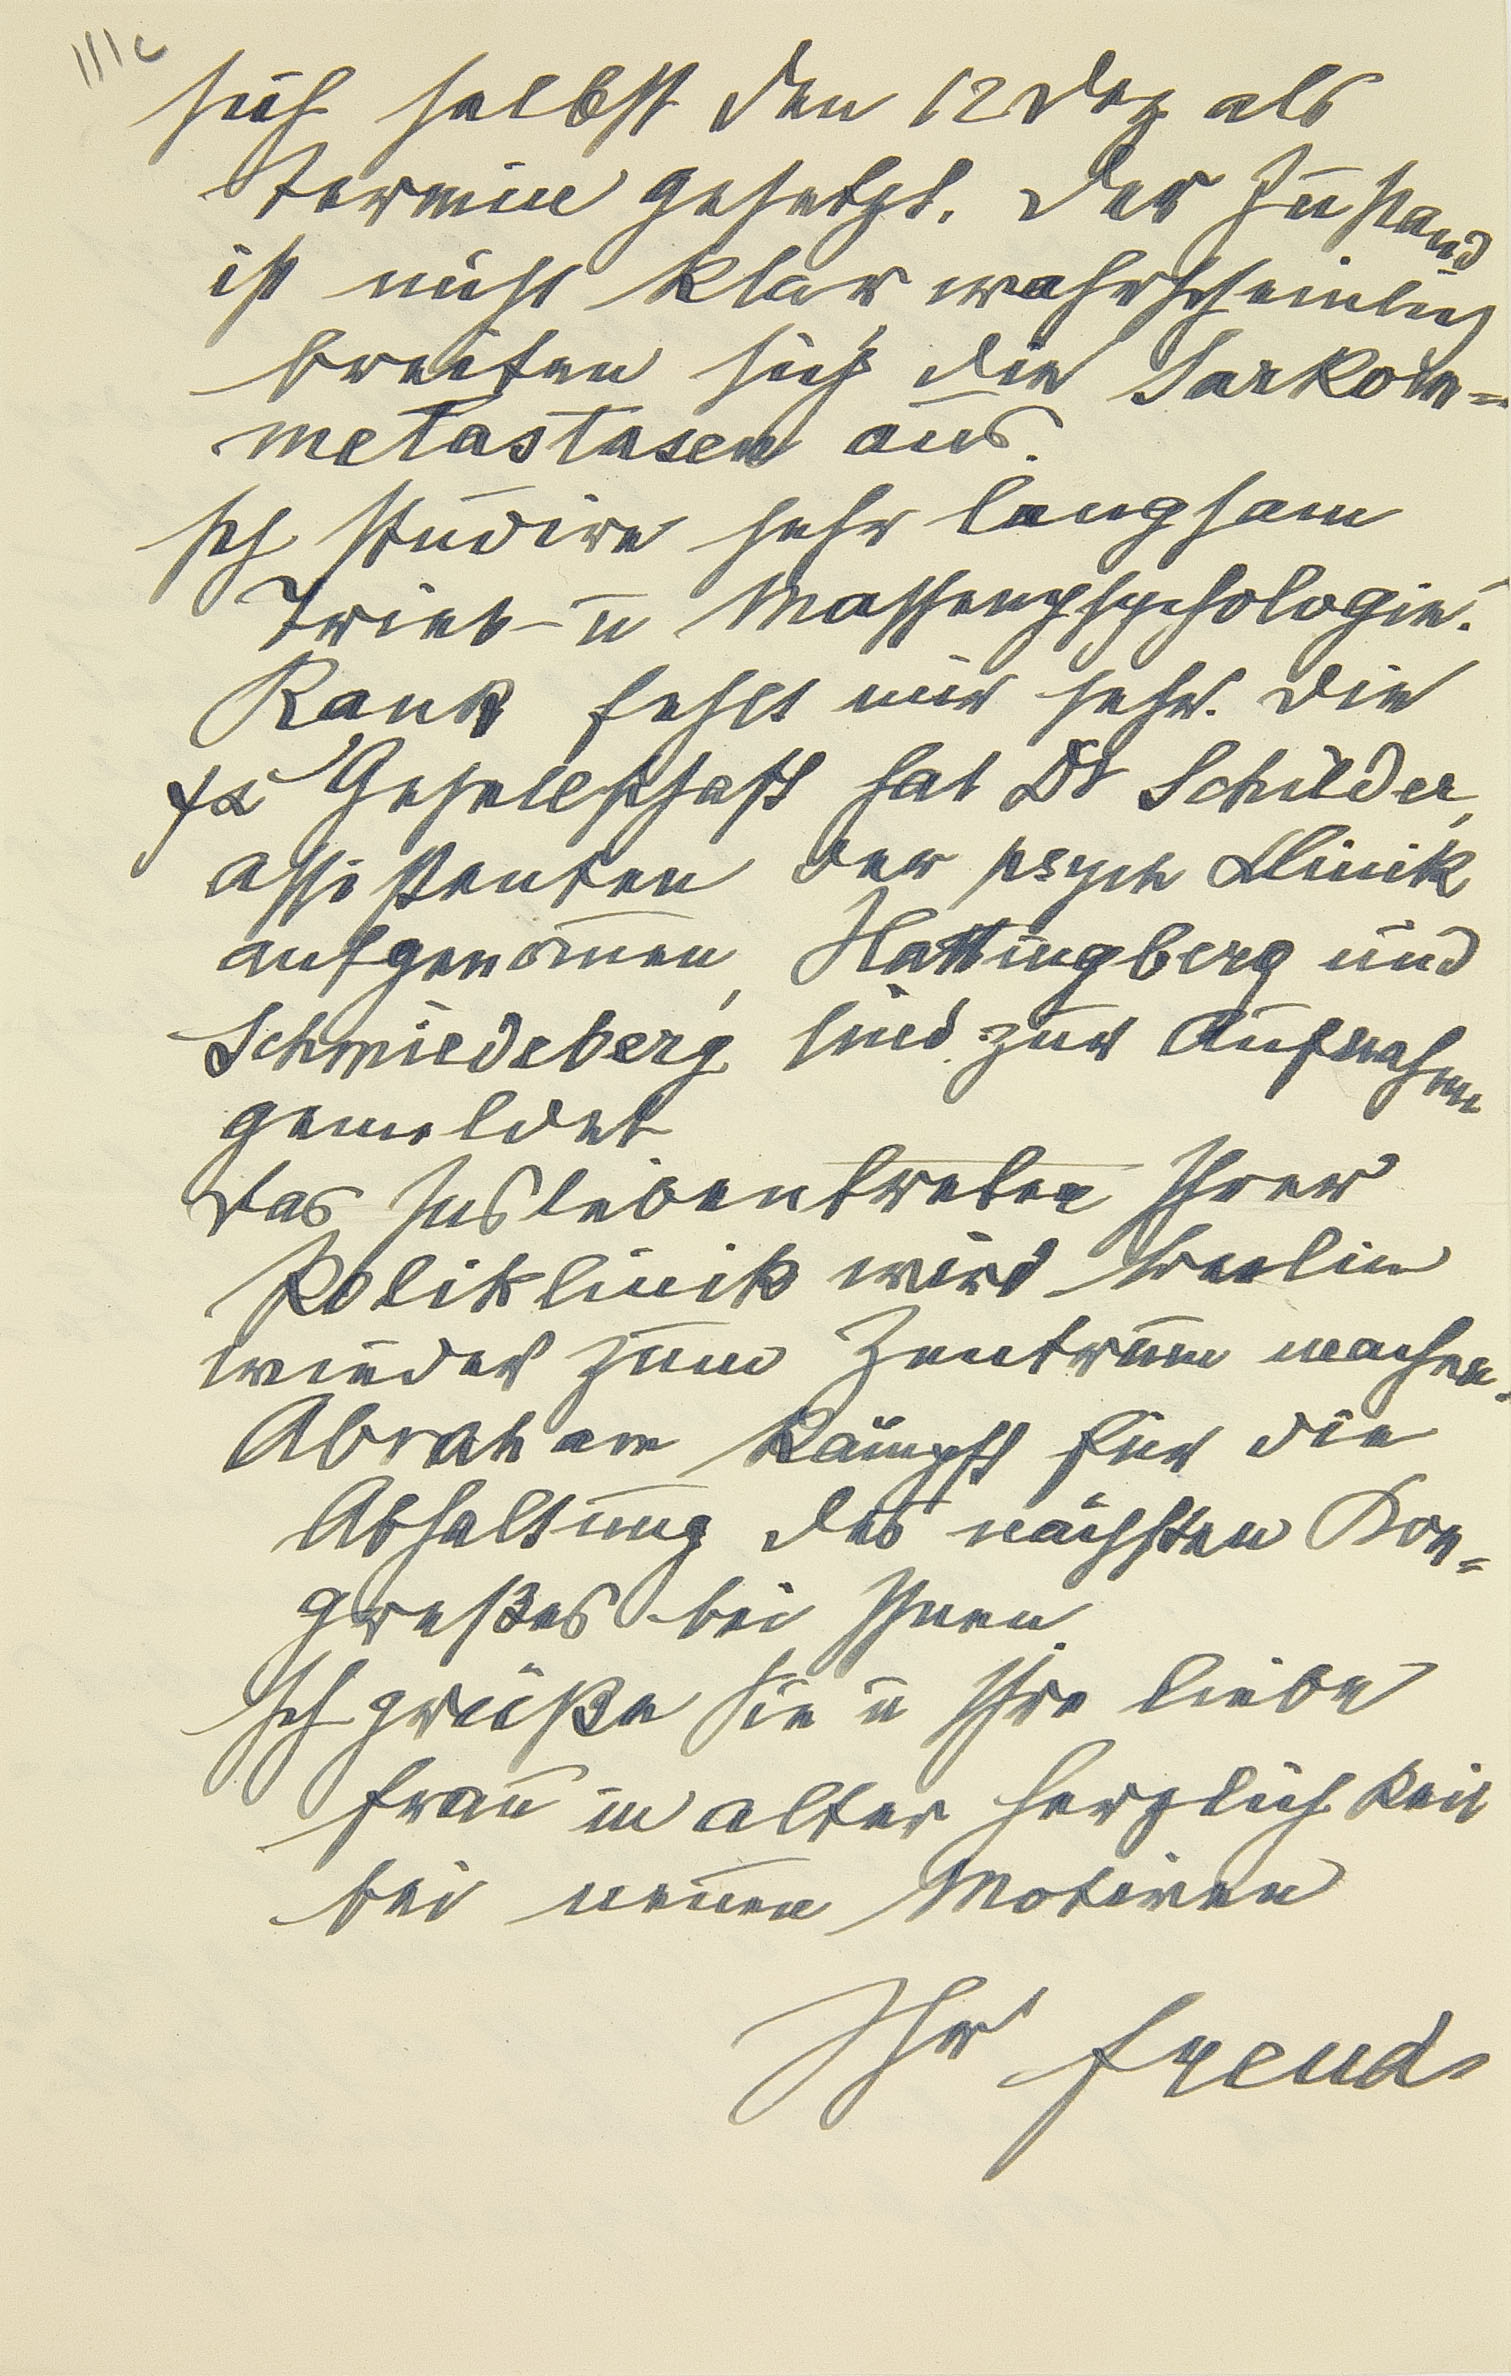 sich selbst den 12 Dez als
Termin gesetzt. Der Zustand
ist nicht klar wahrscheinlich
breiten sich die Sarkom=
metastasen aus.
Ich studire sehr langsam
Trieb- u Massenpsychologie.
Rank fehlt mir sehr. Die
ψα Gesellschaft hat Dr Schilder,
Assistenten der psych Klinik
aufgenommen, Hattingberg und
Schmiedeberg sind zur Aufnahme
gemeldet
Das Inslebentreten Ihrer
Poliklinik wird Berlin
wieder zum Zentrum machen.
Abraham kämpft für die
Abhaltung des nächsten Kon=
greßes bei Ihnen.
Ich grüße Sie u Ihre liebe
Frau in alter Herzlichkeit
bei neuen Motiven
Ihr Freud